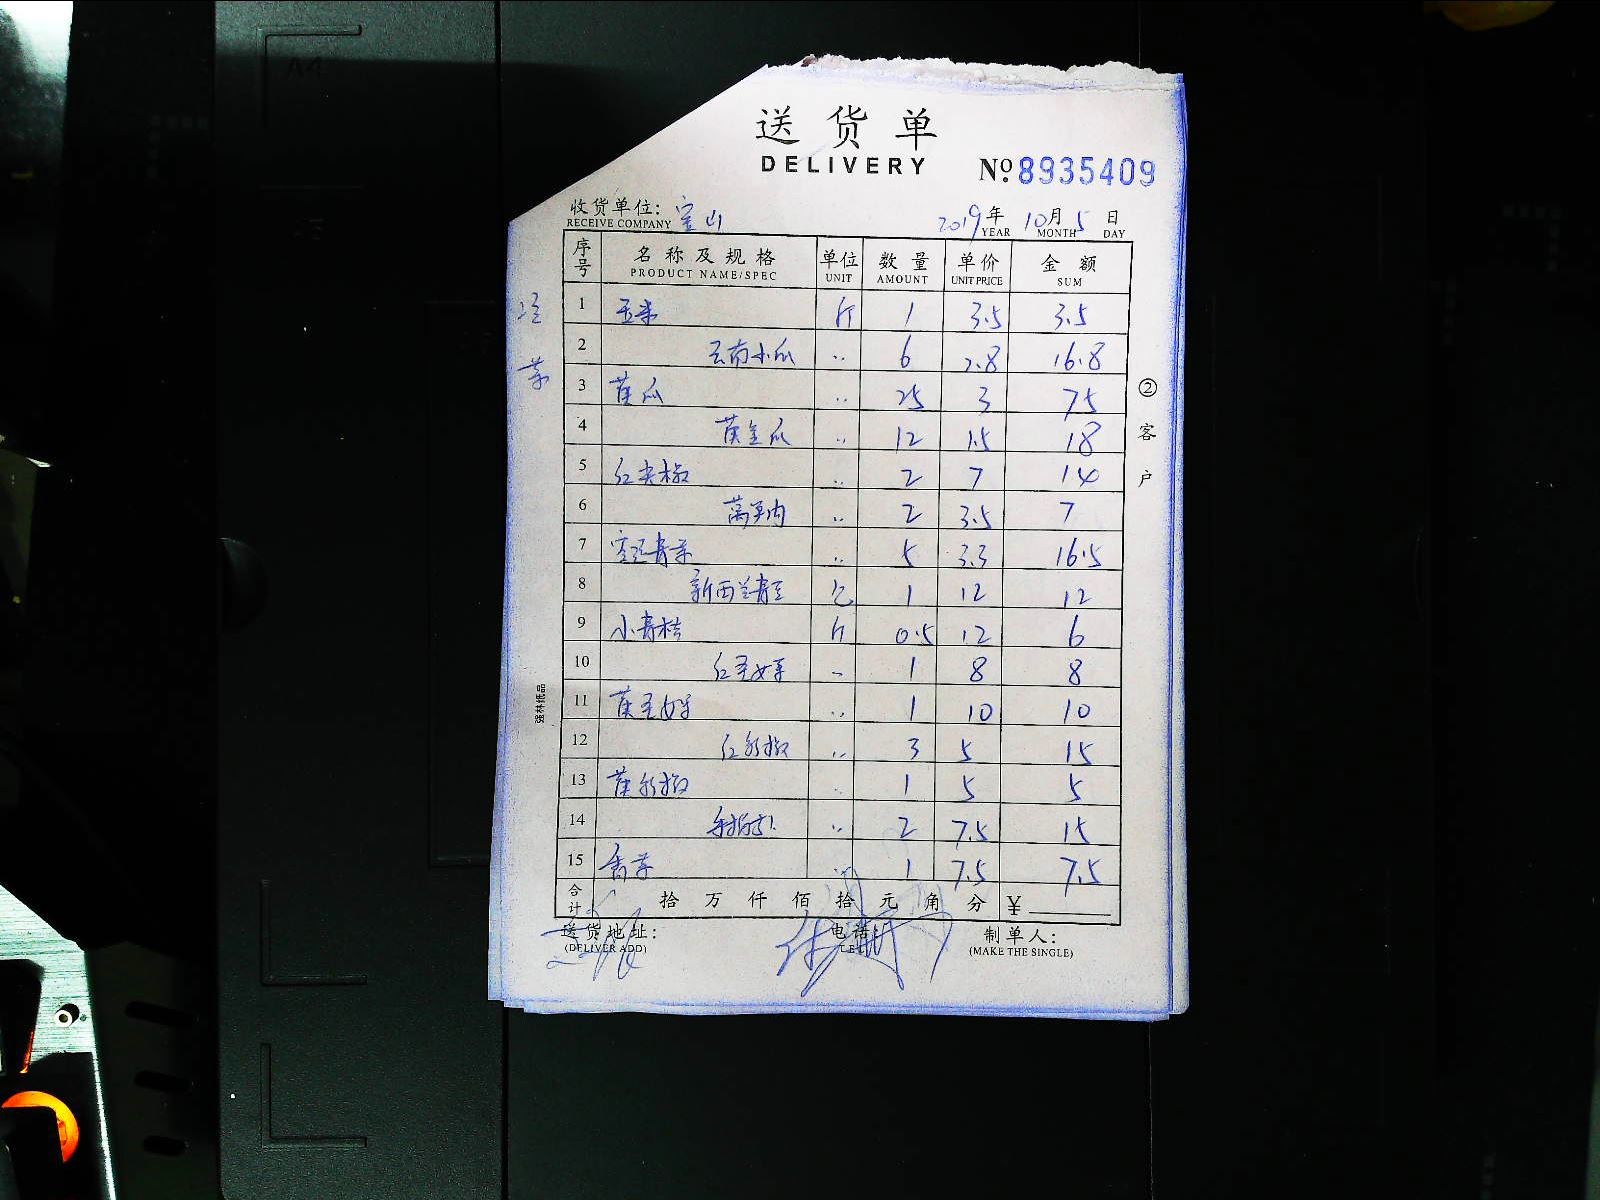 送货单
DELIVERY
№ 8935409
收货单位: 宝山 2019年 10月 5日
RECEIVE COMPANY YEAR MONTH DAY
序号 名称及规格 单位 数量 单价 金额
PRODUCT NAME/SPEC UNIT AMOUNT UNIT PRICE SUM
1 玉米 斤 1 3.5 3.5
2 云南小瓜 〃 6 2.8 16.8
3 黄瓜 〃 25 3 75
4 黄金瓜 〃 12 1.5 18
5 红尖椒 〃 2 7 14
6 〃 2 3.5 7
7 〃 5 3.3 16.5
8 新西兰青豆 包 1 12 12
9 小青桔 斤 0.5 12 6
10 红圣女果 〃 1 8 8
11 黄圣女果 〃 1 10 10
12 红彩椒 〃 3 5 15
13 黄彩椒 〃 1 5 5
14 〃 2 7.5 15
15 香芹 〃 1 7.5 7.5
合计 拾 万 仟 佰 拾 元 角 分 ¥
送货地址: 电话: 制单人:
(DELIVER ADD) (MAKE THE SINGLE)
②客户
强林纸品
A4